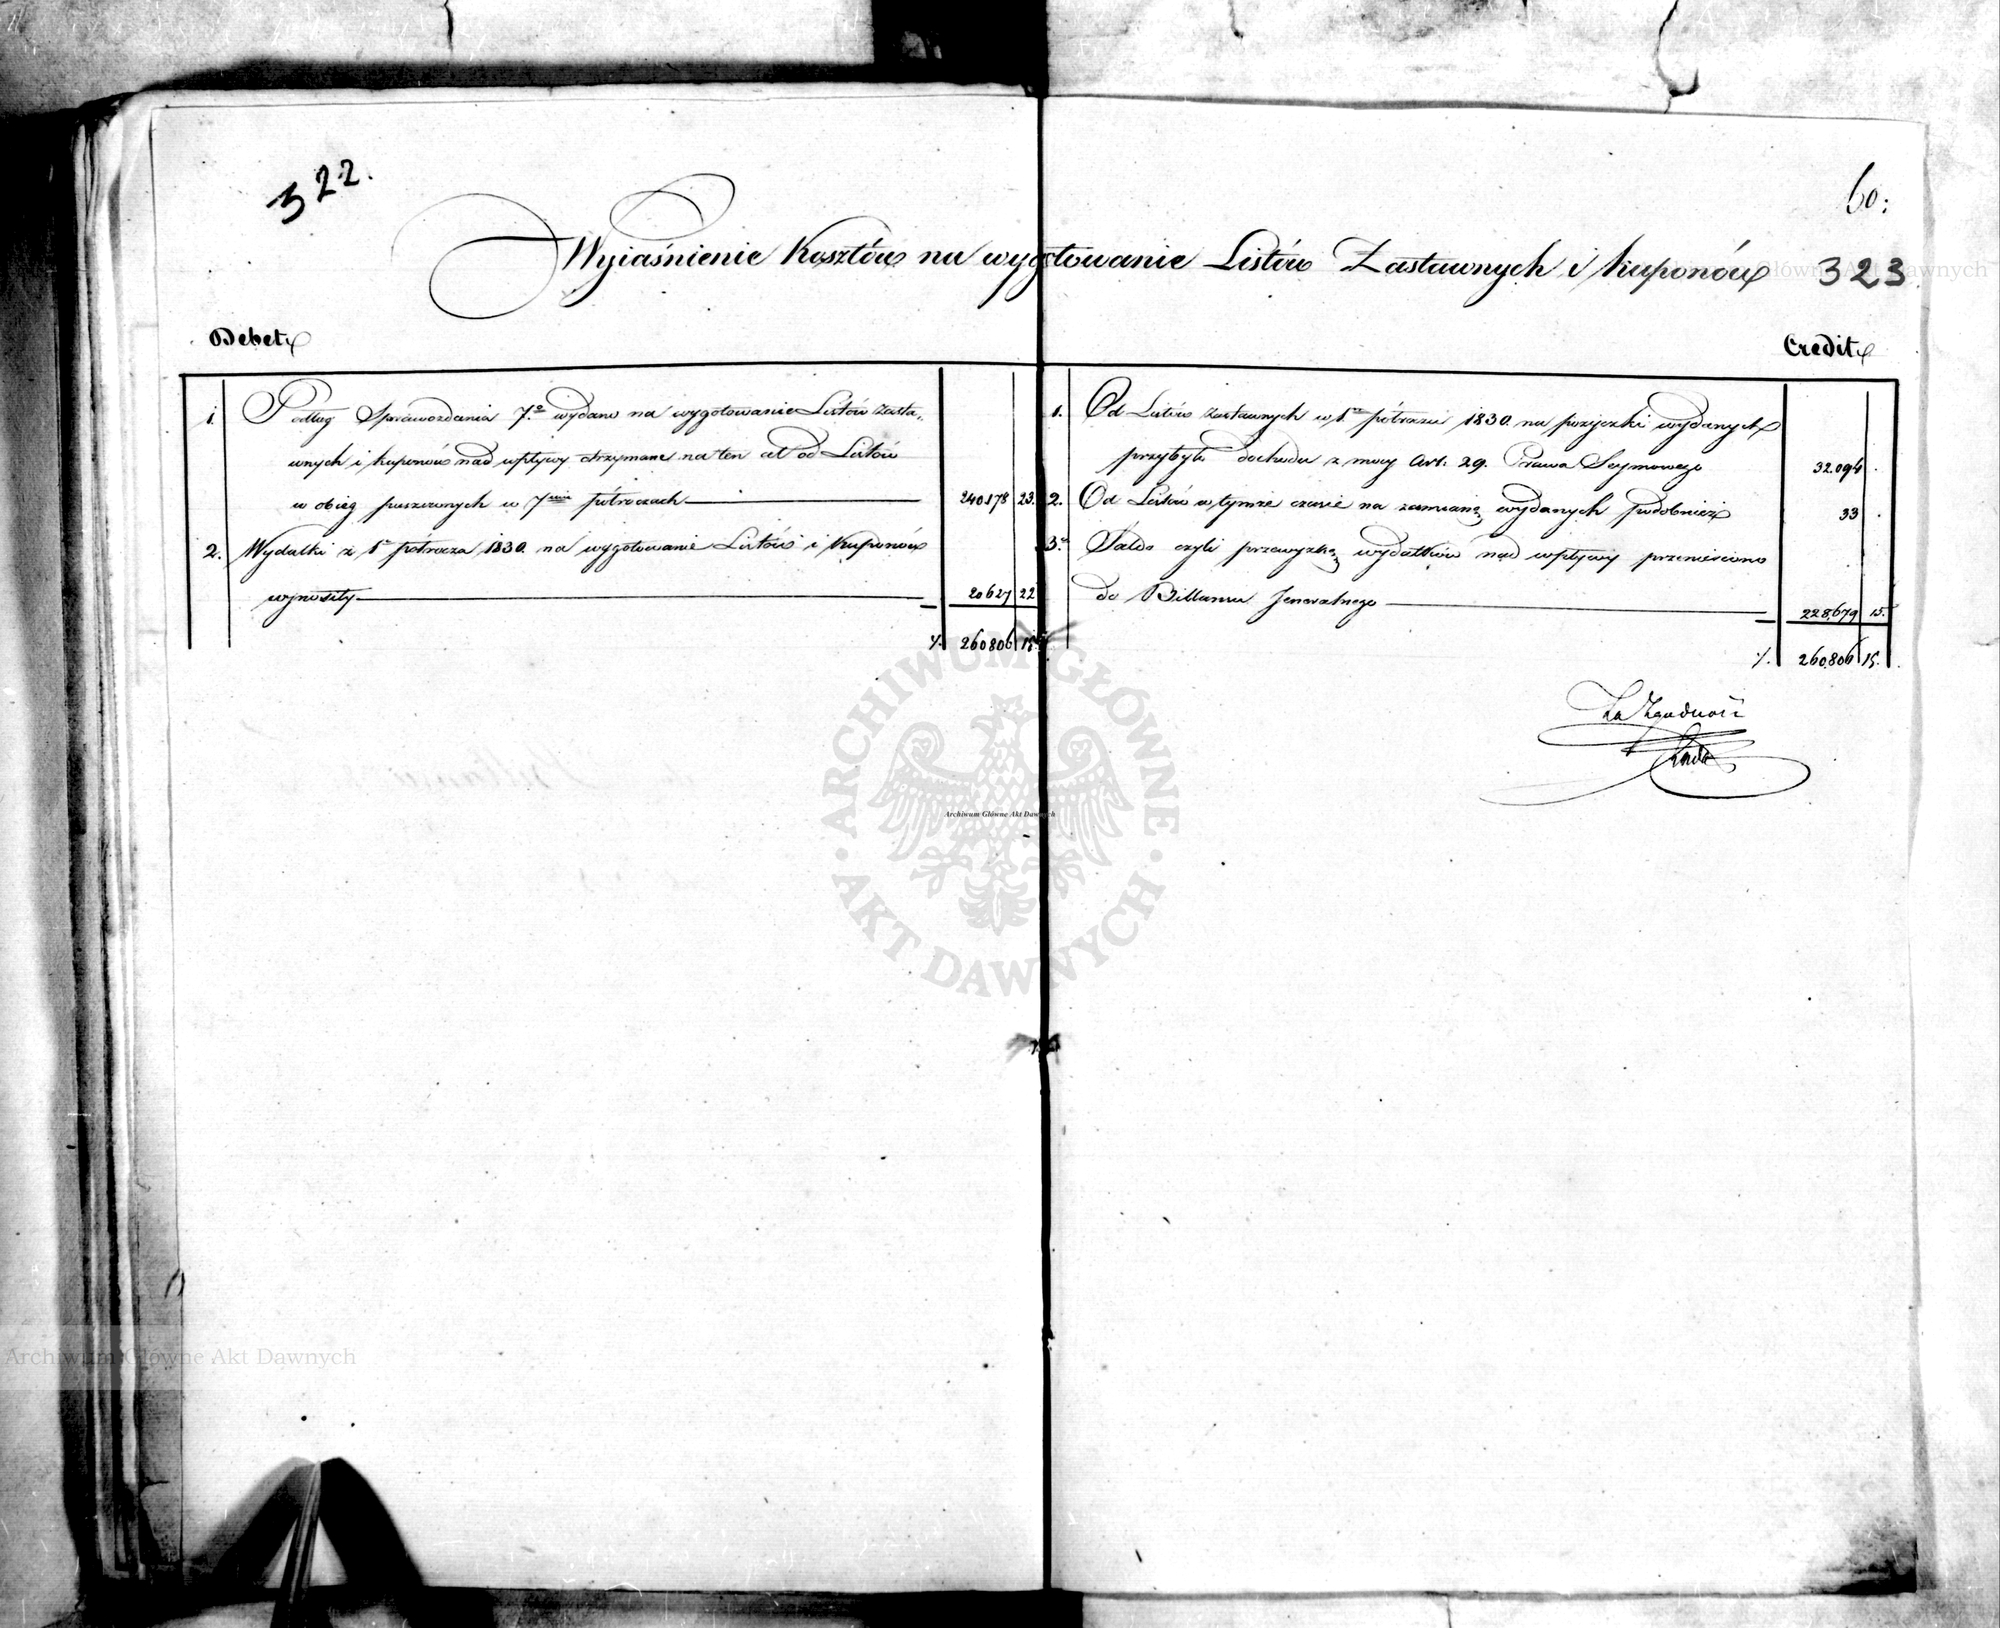 322.
60:
Wyiaśnienie Kosztów na wygotowanie Listów Zastawnych i kuponów 323
Debet
1. Podług Sprawozdania 7.o wydano na wygotowanie Listów zasta-
wnych i kuponów nad wpływy otrzymane na ten cel od Listów
w obieg puszczonych w 7miu półroczach 240.178 23.
2. Wydatki z 1o półrocza 1830. na wygotowanie Listów i Kuponów
wynosiły 20627 22
/. 260806 15
Credit
1. Od Listów zastawnych w 1m półroczu 1830. na pożyczki wydanych
przybyło dochodu z mocy Art: 29. Prawa Seymowego 32.094 .
2. Od Listów w tymże czasie na zamianę wydanych podobnież 33 .
3. Saldo czyli przewyżkę wydatków nad wpływy przeniesiono
do Billansu Jeneralnego 228,679 15.
/. 260,806 15.
Za Zgodność
Archiwum Główne Akt Dawnych
ARCHIWUM GŁÓWNE
AKT DAWNYCH
Archiwum Główne Akt Dawnych
Główne Akt Dawnych